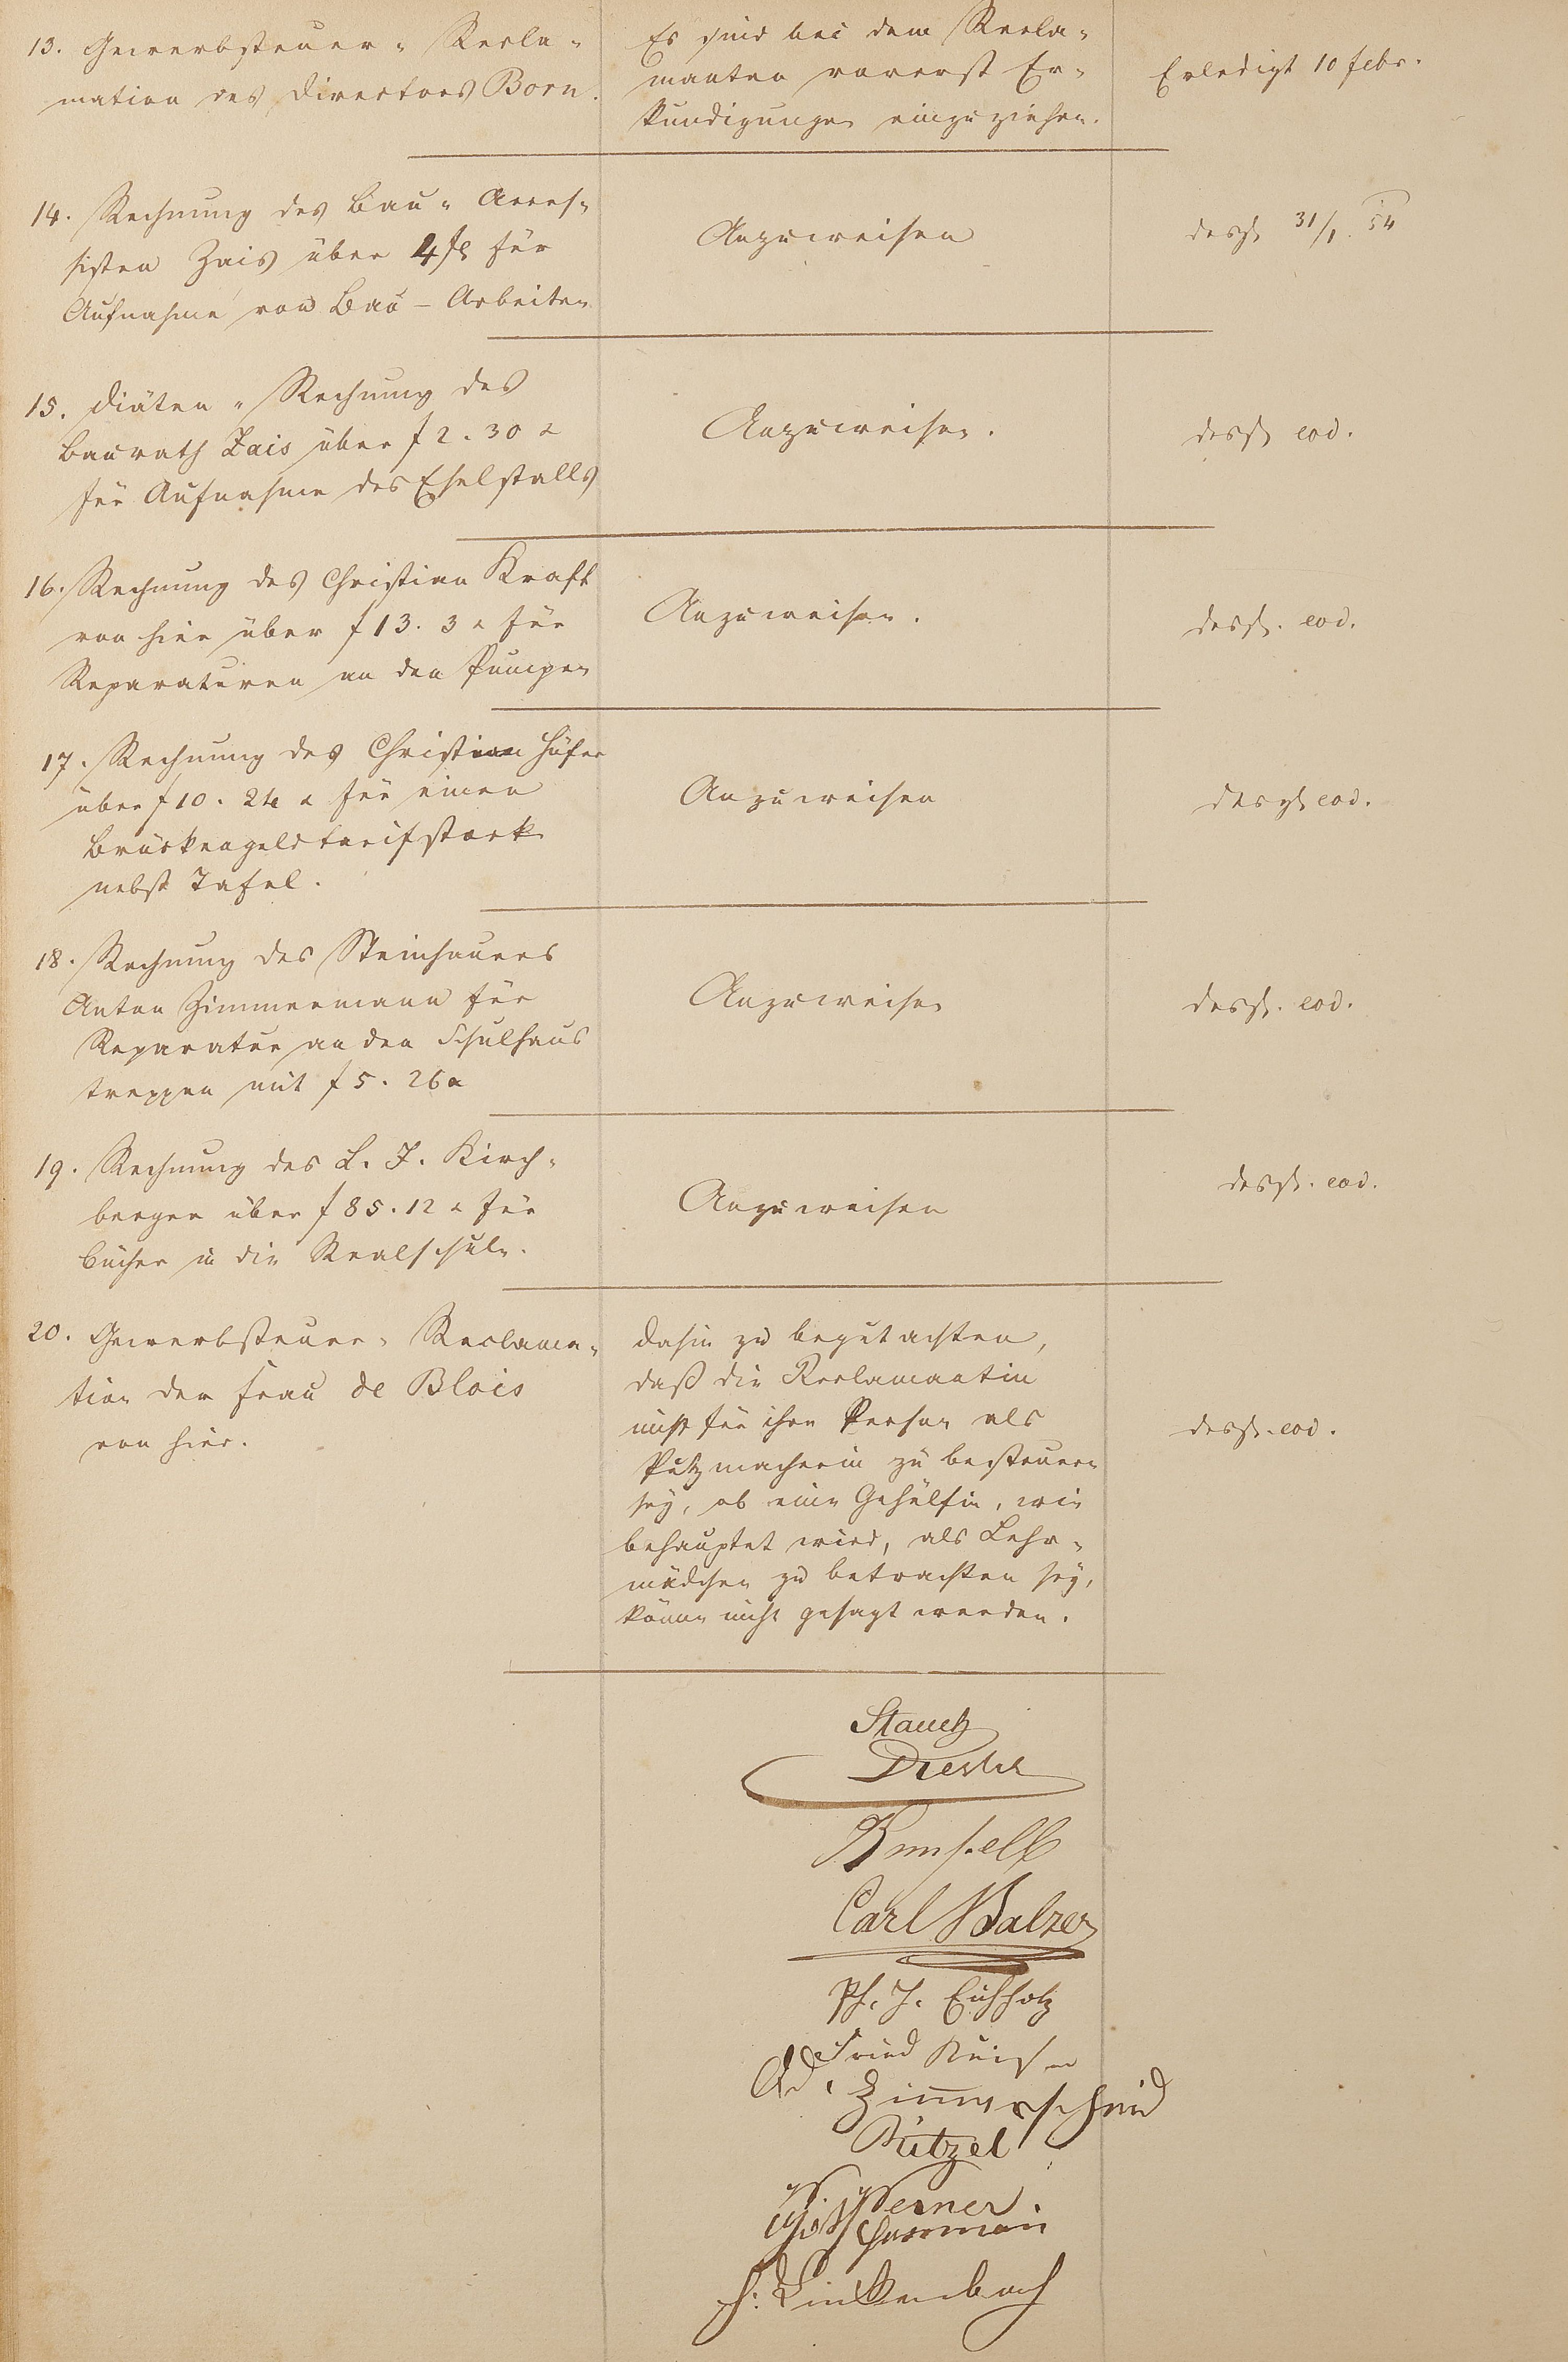 13. Gewerbsteuer-Recla-
mation des Directors Born.
Es sind bei dem Recla-
manten vorerst Er-
kundigungen einzuziehen.
Erledigt 10 febr.
14. Rechnung des Bau-Acces-
sisten Zais über 4 fl für
Aufnahme von Bau-Arbeiten
Anzuweisen
desgl 31/1. 54
15. Diäten-Rechnung des
Baurath Zais über f 2. 30 x
für Aufnahme des Eselstalls
Anzuweisen.
desgl eod.
16. Rechnung des Christian Kraft
von hier über f 13. 3 x für
Reparaturen an den Pumpen
Anzuweisen.
desgl. eod.
17. Rechnung des Christian Höfer
über f 10. 24 x für einen
Brückengeldtarifstock
nebst Tafel.
Anzuweisen
desgl eod.
18. Rechnung des Steinhauers
Anton Zimmermann für
Reparatur an den Schulhaus
treppen mit f 5. 26 x
Anzuweisen
desgl. eod.
19. Rechnung des L. J. Kirch-
berger über f 85. 12 x für
Bücher in die Realschule.
Anzuweisen
desgl. eod.
20. Gewerbsteuer-Reclama-
tion der Frau de Blois
von hier.
dahin zu begutachten,
daß die Reclamantin
nicht für ihre Person als
Putzmacherin zu besteuern
sey, ob eine Gehülfin, wie
behauptet wird, als Lehr-
mädchen zu betrachten sey,
könne nicht gesagt werden.
desgl. eod.
Stauch
Carl Balzer
Ph. J. Eichholz
Fried
Ad. Zimmerschied
Bützel
W. Werner
Herrmann
H. Linkenbach